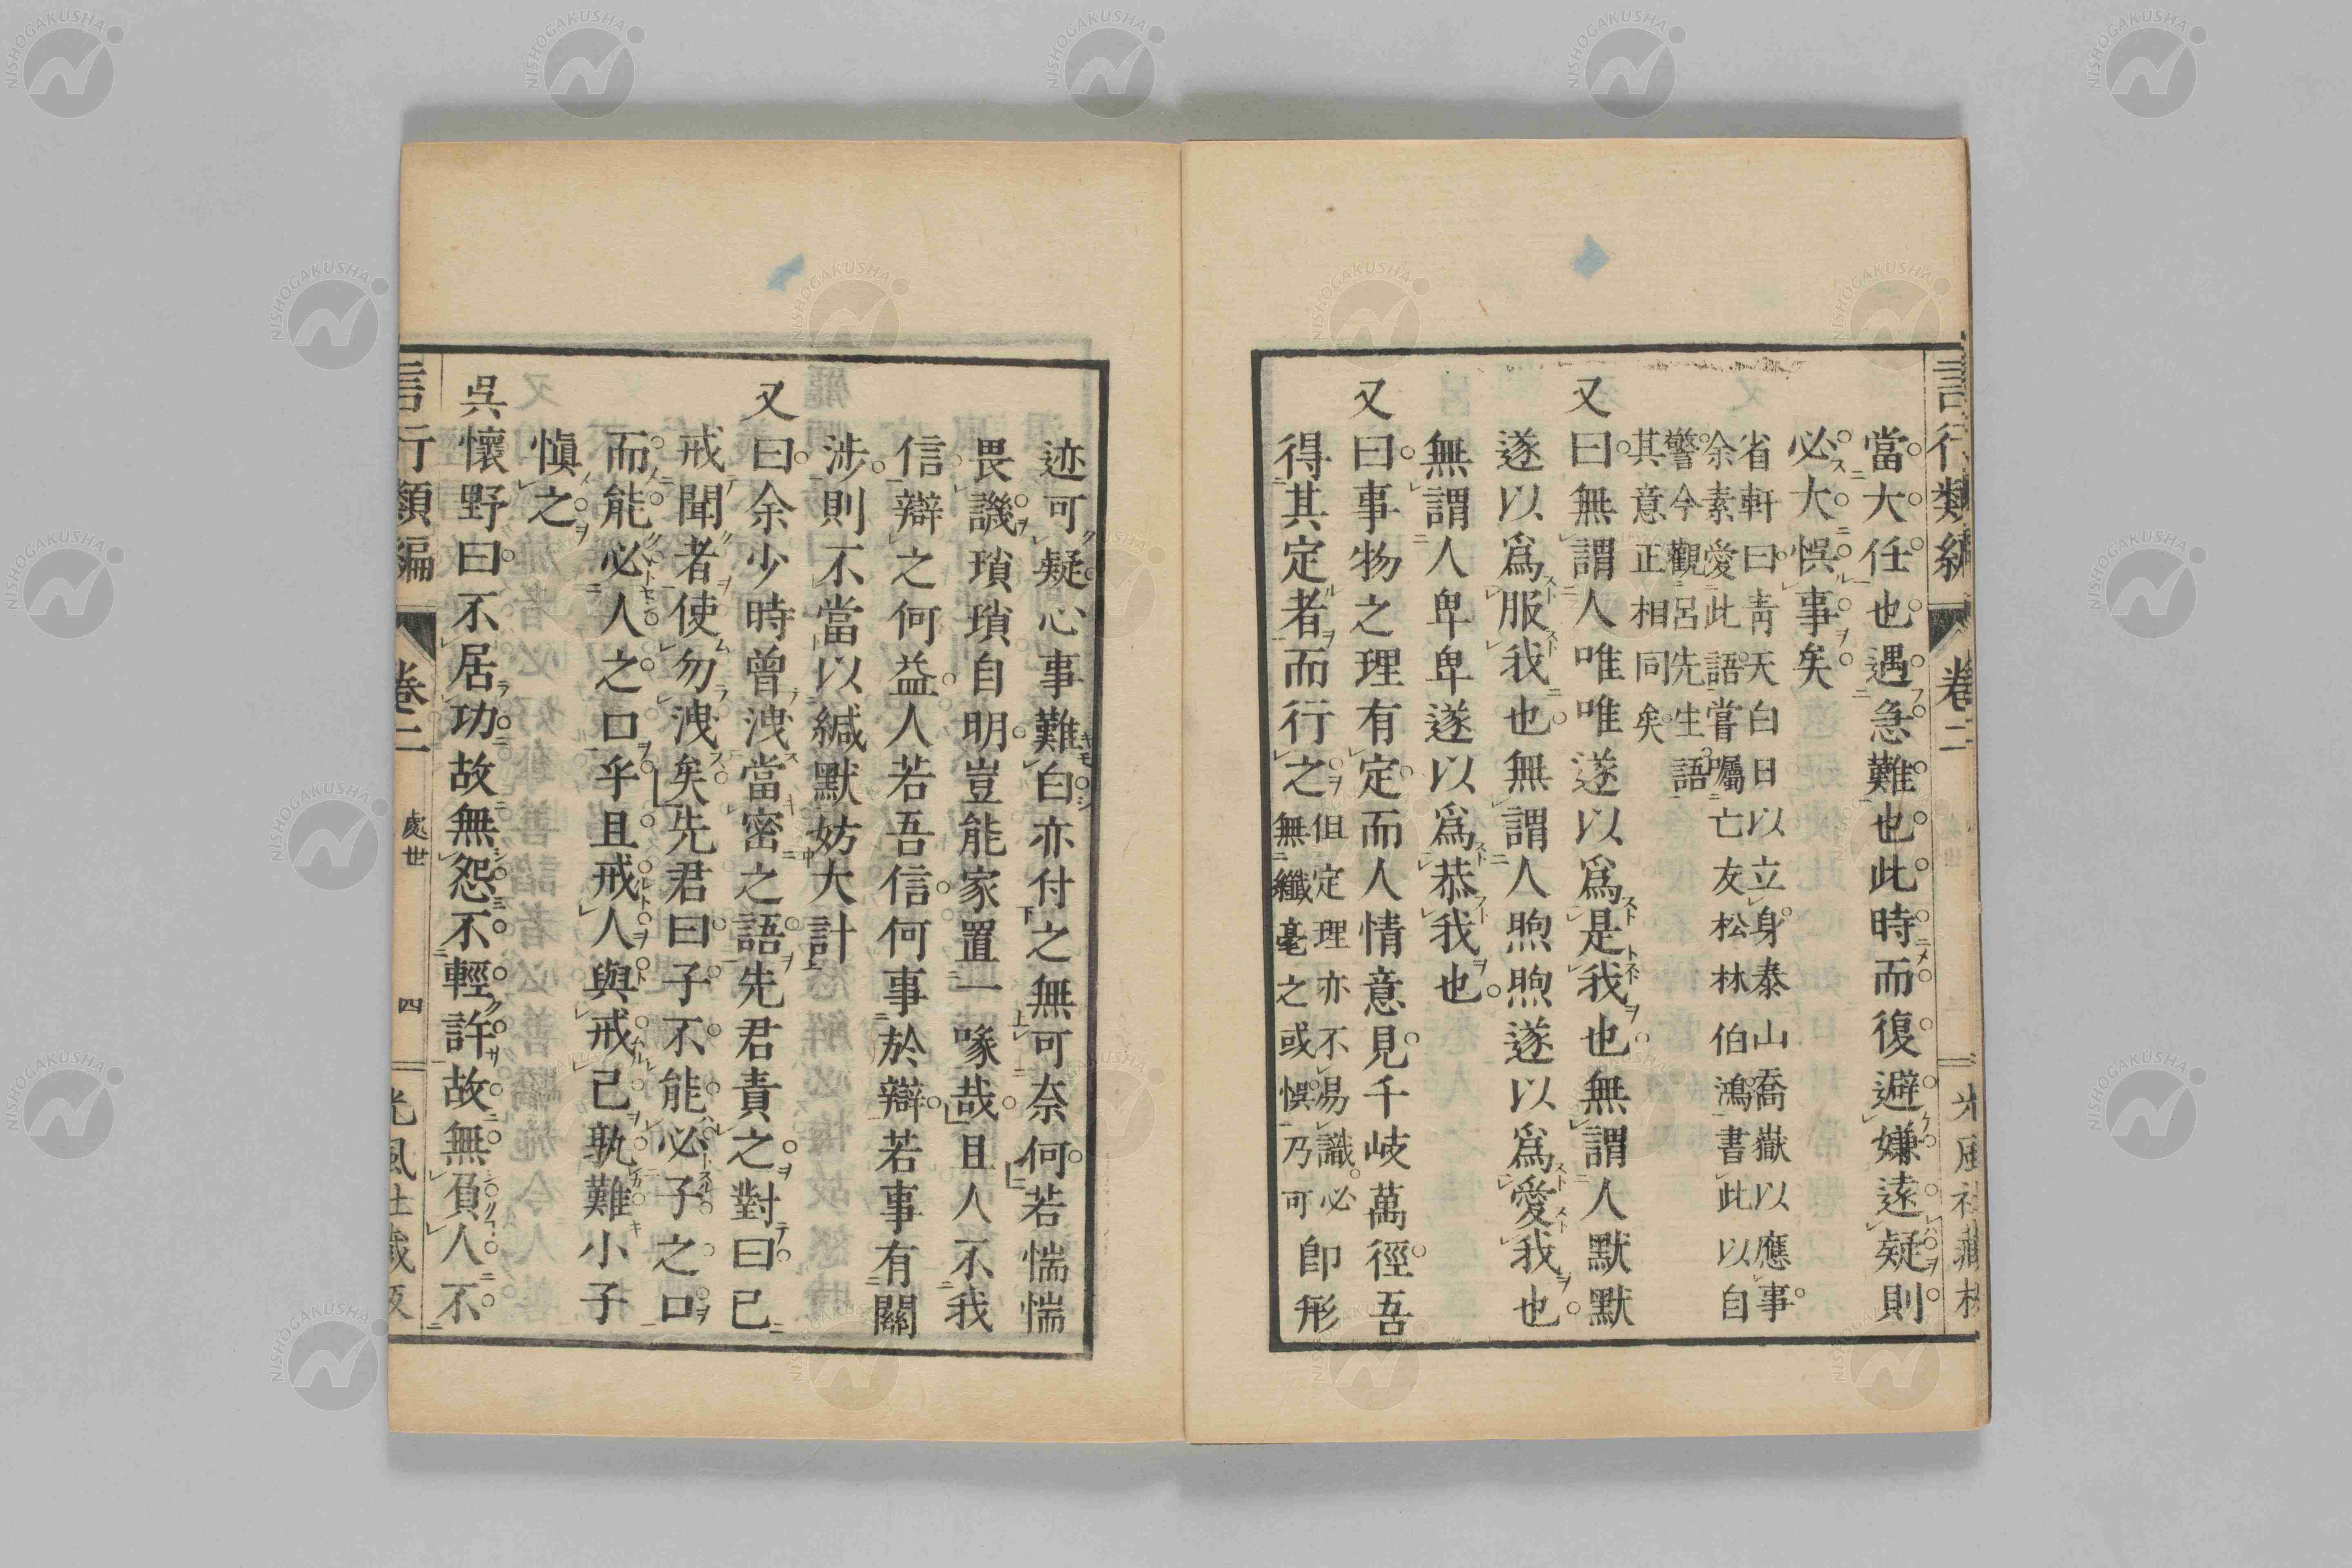 言行類編 卷二 光風社藏板
當大任也遇急難也此時而復避嫌遠疑則
必大悞事矣
省軒曰靑天白日以立身泰山喬嶽以應事
余素愛此語嘗囑亡友松林伯鴻書此以自
警今觀呂先生語
其意正相同矣
又曰無謂人唯唯遂以爲是我也無謂人默默
遂以爲服我也無謂人煦煦遂以爲愛我也
無謂人卑卑遂以爲恭我也
又曰事物之理有定而人情意見千岐萬徑吾
得其定者而行之即形
但定理亦不易識必
無纖毫之或悞乃可
迹可疑心事難白亦付之無可奈何若惴惴
畏譏瑣瑣自明豈能家置一喙哉且人不我
信辯之何益人若吾信何事於辯若事有關
涉則不當以緘默妨大計
又曰余少時曾洩當密之語先君責之對曰已
戒聞者使勿洩矣先君曰子不能必子之口
而能必人之口乎且戒人與戒己孰難小子
愼之
吳懷野曰不居功故無怨不輕許故無負人不
言行類編 卷二 處世 四 光風社藏板
NISHOGAKUSHA